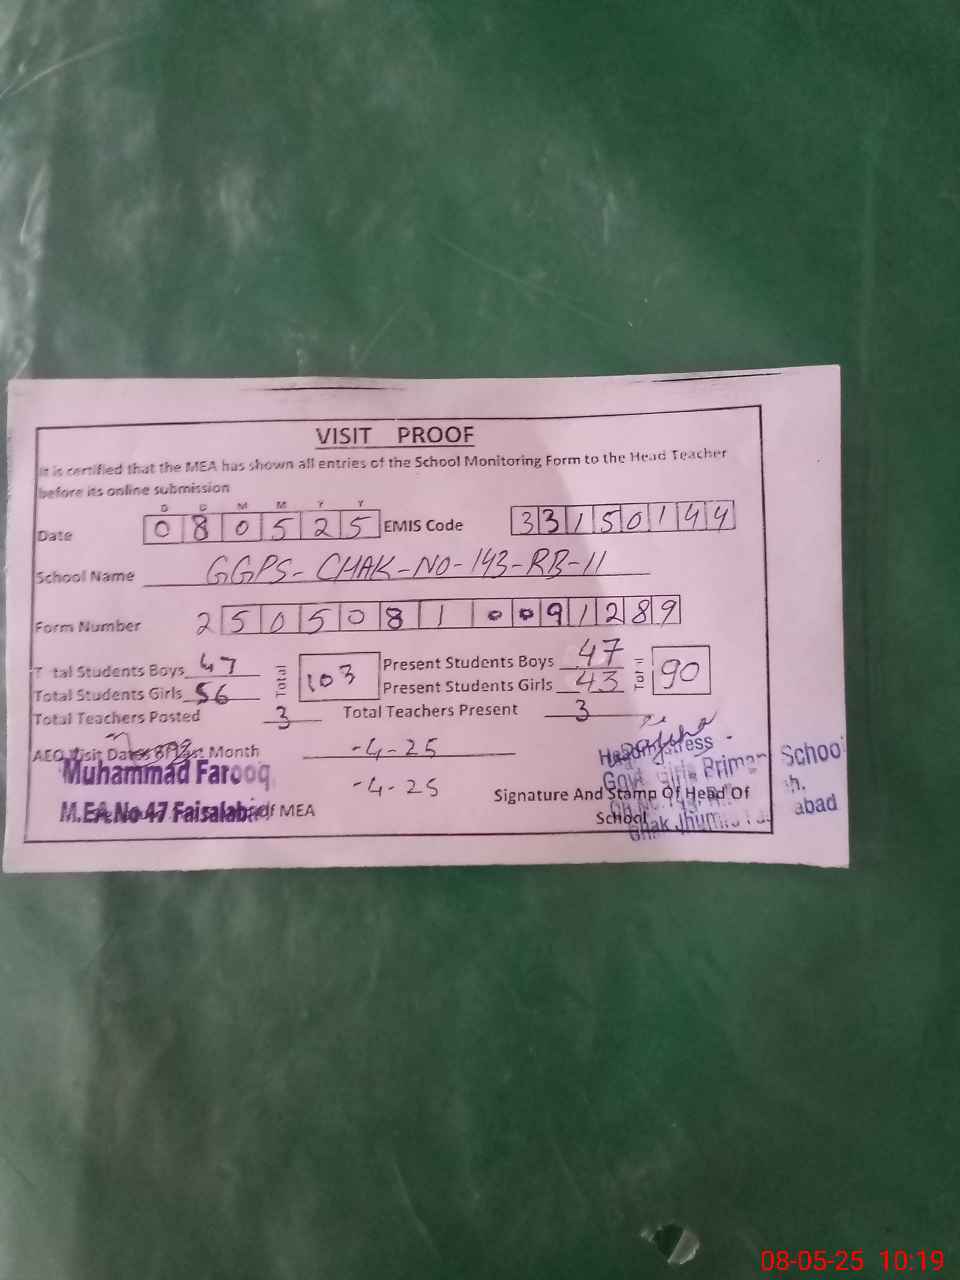 VISIT PROOF
It is certified that the MEA has shown all entries of the School Monitoring Form to the Head Teacher
before its online submission
D D M M Y Y
Date 080525 EMIS Code 33150144
School Name GGPS-CHAK-NO-143-RB-II
Form Number 2505081009 1289
Total Students Boys 47 Total 103 Present Students Boys 47 Total 90
Total Students Girls 56 Present Students Girls 43
Total Teachers Posted 3 Total Teachers Present 3
AEO Visit Dates Of Last Month -4-25
-4-25
Muhammad Farooq
M.EA.No 47 Faisalabad
of MEA
Signature And Stamp Of Head Of
School
Headmistress
Govt. Girls Primary School
Chak Jhumra
08-05-25 10:19